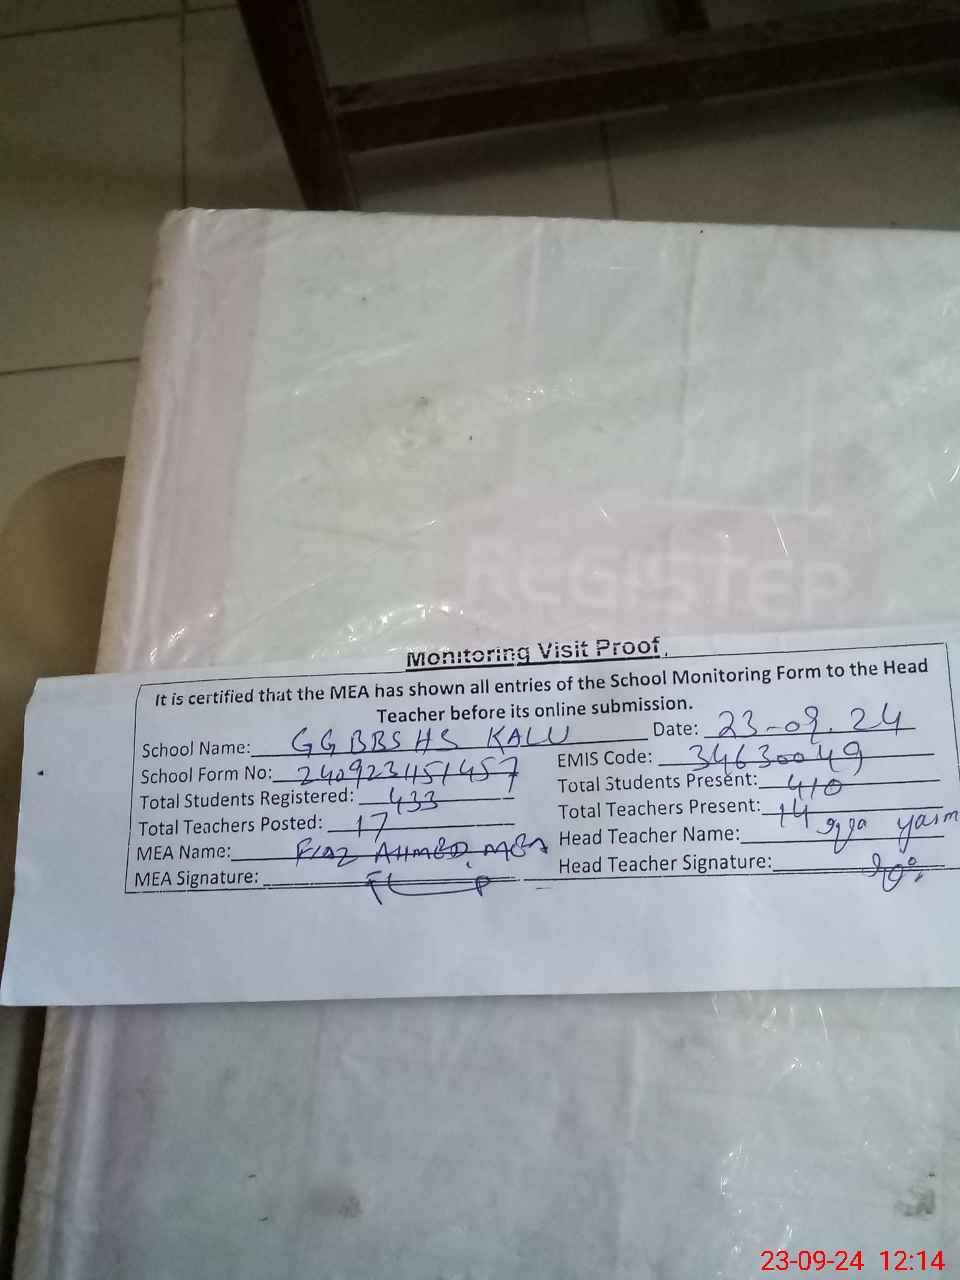 REGISTER
Monitoring Visit Proof.
It is certified that the MEA has shown all entries of the School Monitoring Form to the Head
Teacher before its online submission.
School Name: GGBBSHS KALU Date: 23-09.24
School Form No: 240923451457 EMIS Code: 34630049
Total Students Registered: 433 Total Students Present: 410
Total Teachers Posted: 17 Total Teachers Present: 14
MEA Name: FIAZ AHMED. MEA Head Teacher Name:
MEA Signature: Head Teacher Signature:
23-09-24 12:14